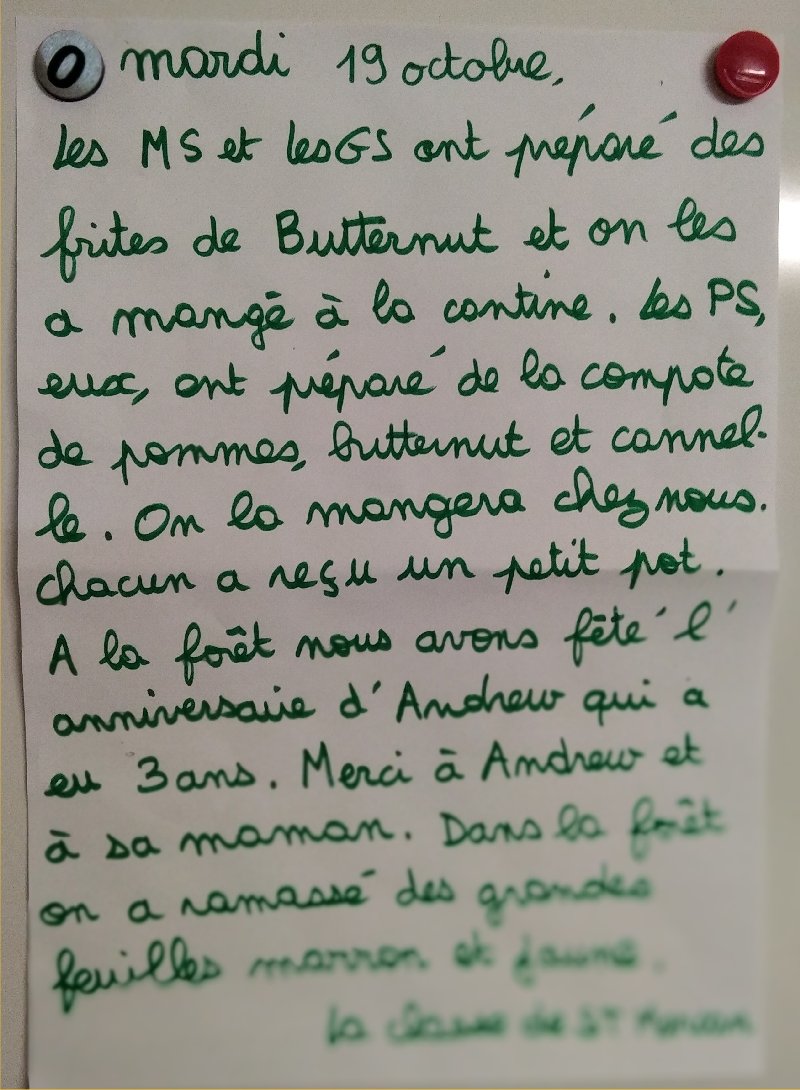 O
mardi 19 octobre,
Les MS et les GS ont préparé des
frites de Butternut et on les
a mangé à la cantine. Les PS,
eux, ont préparé de la compote
de pommes, butternut et cannel-
le. On la mangera chez nous.
chacun a reçu un petit pot.
A la forêt nous avons fêté l'
anniversaire d'Andrew qui a
eu 3 ans. Merci à Andrew et
à sa maman. Dans la forêt
on a ramassé des grandes
feuilles marron et jaune.
La classe de ST